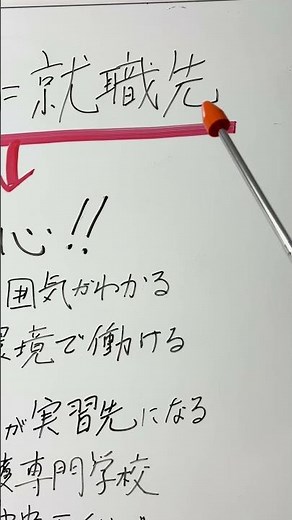 =就職先
心!!
囲気がわかる
環境で働ける
が実習先になる
専門学校